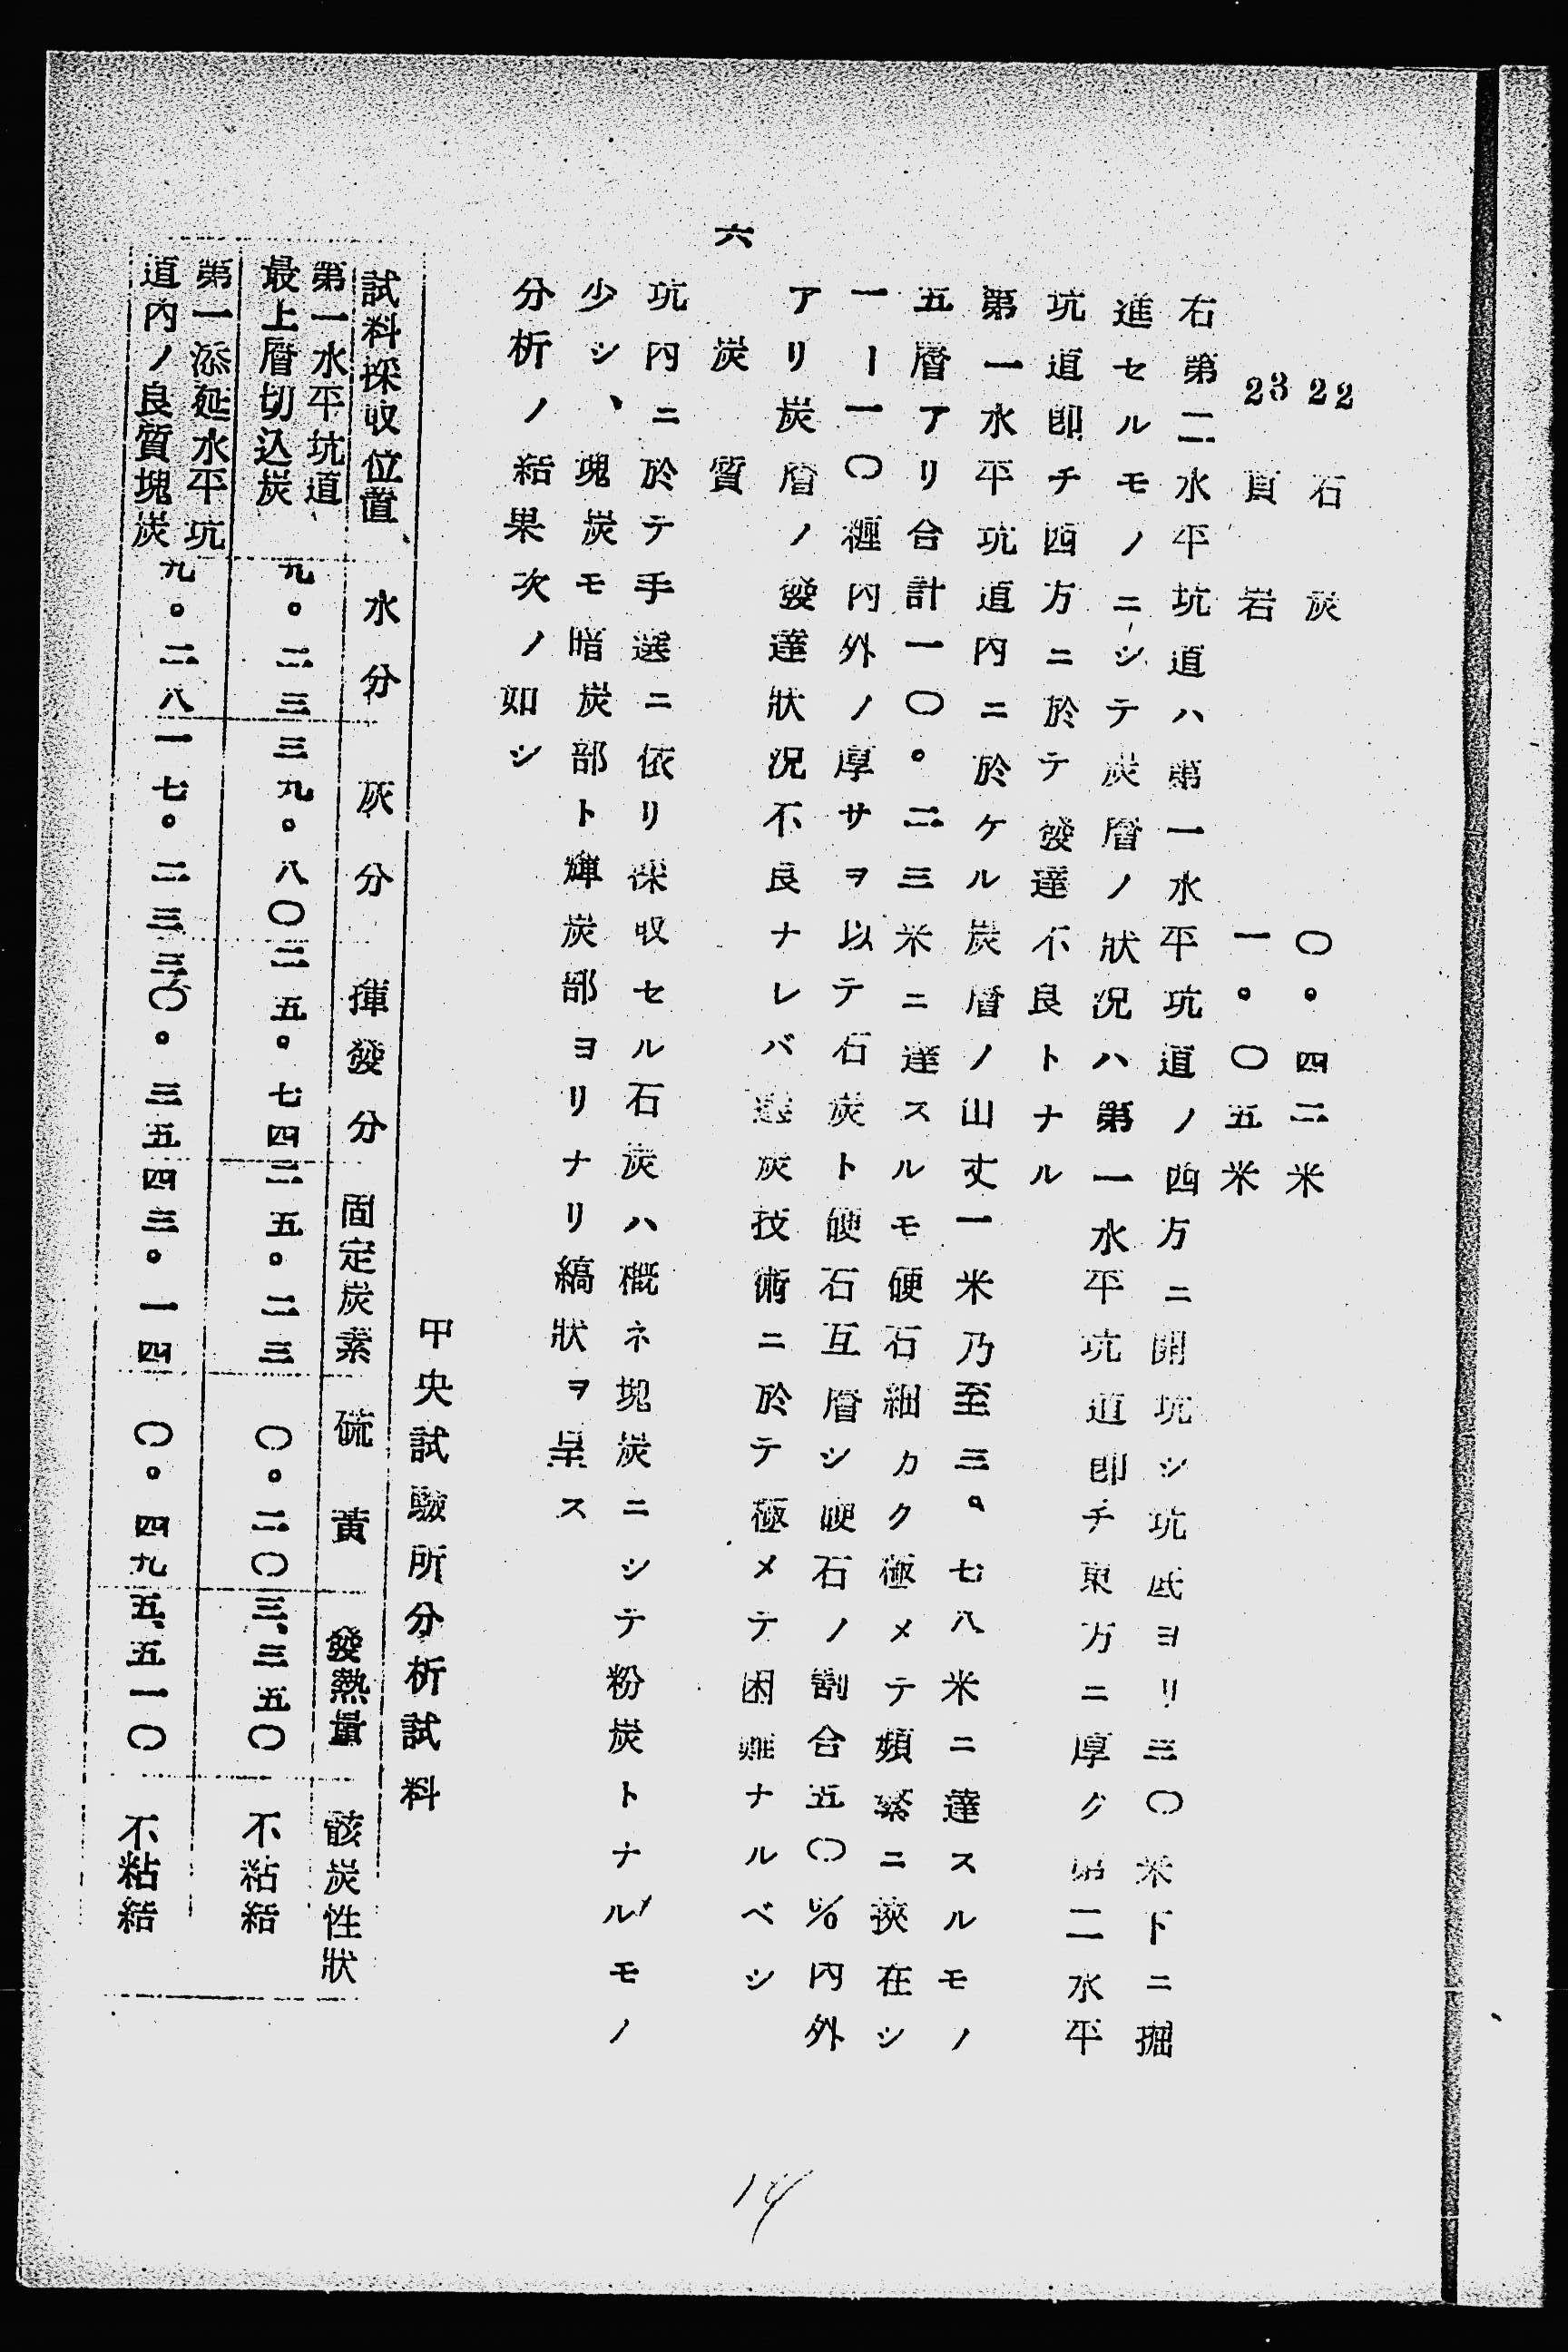 22 石炭 〇。四二米
23 頁岩 一。〇五米
右第二水平坑道ハ第一水平坑道ノ西方ニ開坑シ坑底ヨリ三〇米下ニ掘
進セルモノニシテ炭層ノ狀況ハ第一水平坑道卽チ東方ニ厚ク第二水平
坑道卽チ西方ニ於テ發達不良トナル
第一水平坑道內ニ於ケル炭層ノ山丈一米乃至三。七八米ニ達スルモノ
五層アリ合計一〇。二三米ニ達スルモ硬石細カク極メテ頻繁ニ挾在シ
一ー一〇糎內外ノ厚サヲ以テ石炭ト硬石互層シ硬石ノ割合五〇%內外
アリ炭層ノ發達狀況不良ナレバ選炭技術ニ於テ極メテ困難ナルベシ
六 炭質
坑內ニ於テ手選ニ依リ採収セル石炭ハ槪ネ塊炭ニシテ粉炭トナルモノ
少シ、塊炭モ暗炭部ト輝炭部ヨリナリ縞狀ヲ呈ス
分析ノ結果次ノ如シ
中央試驗所分析試料
試料採収位置 水分 灰分 揮發分 固定炭素 硫黃 發熱量 骸炭性狀
第一水平坑道
最上層切込炭 九。二三 三九。八〇 二五。七四 二五。二三 〇。二〇 三、三五〇 不粘結
第一添延水平坑
道內ノ良質塊炭 九。二八 一七。二三 三〇。三五 四三。一四 〇。四九 五、五一〇 不粘結
14